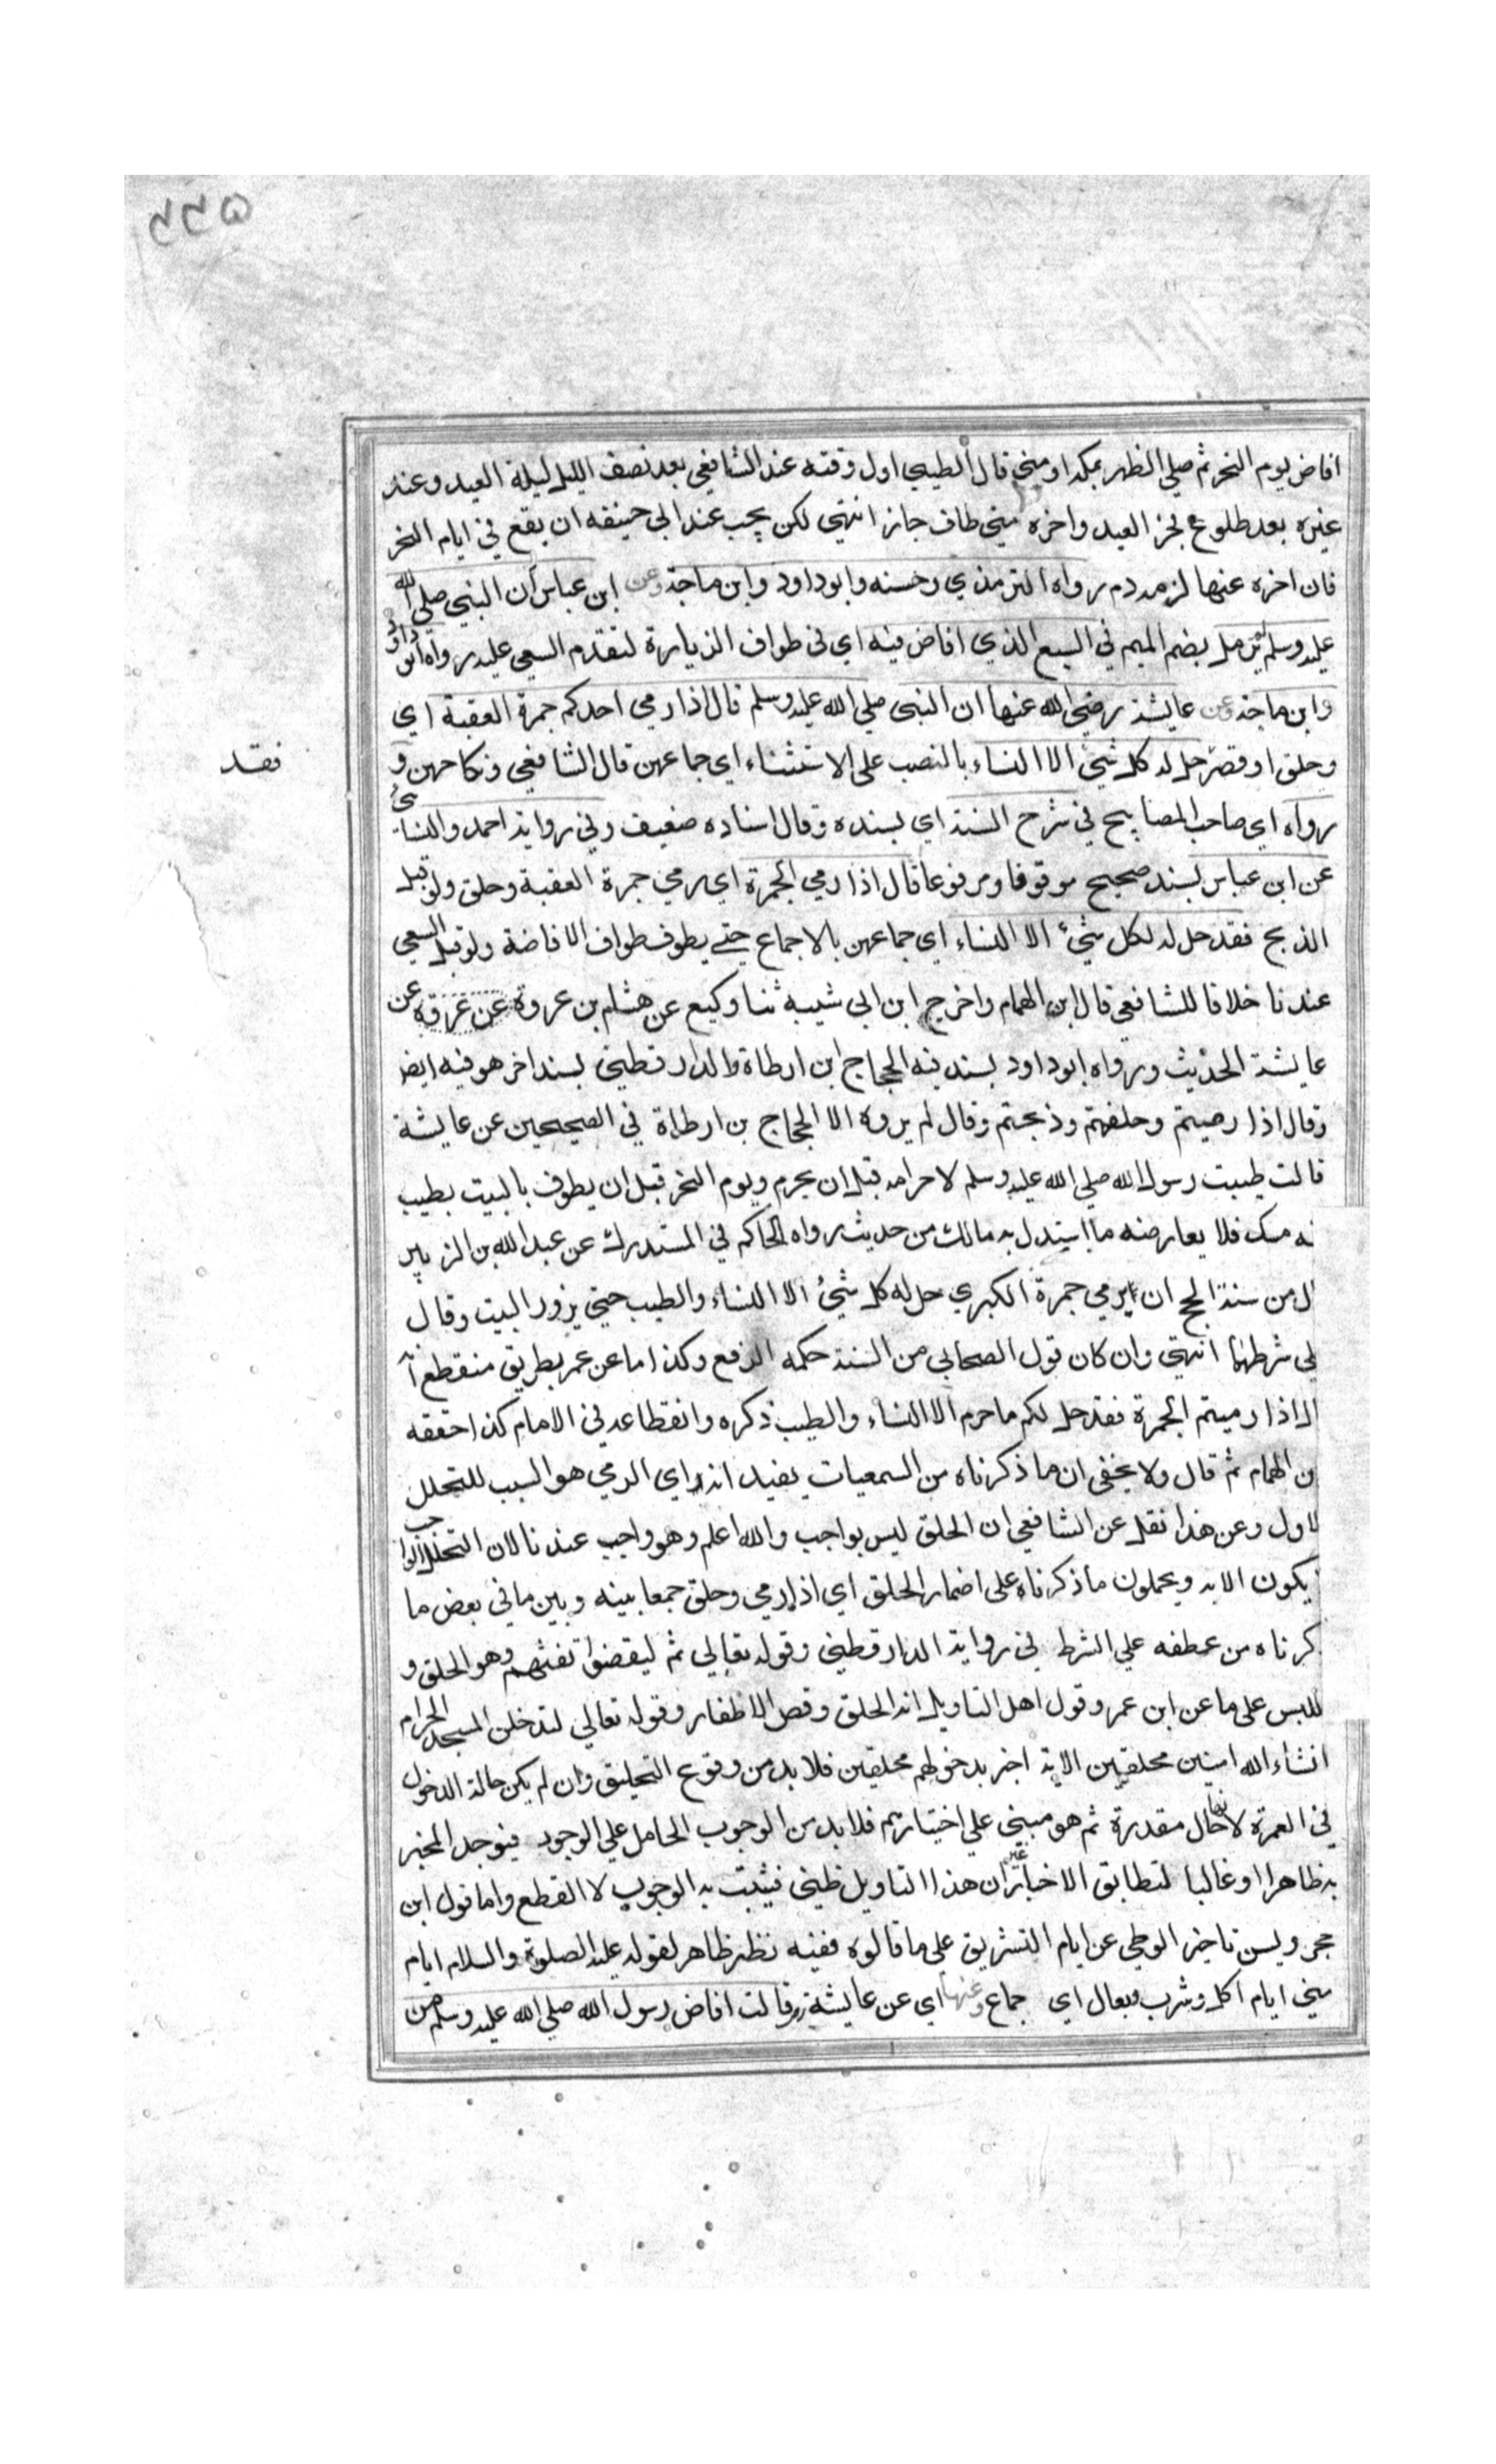 ٥٣٣
افاض يوم النحر ثم صلى الظهر بمكة او منى قال الطيبي اول وقته عند الشافعي بعد نصف الليل ليلة العيد وعند
غيره بعد طلوع فجر العيد واخره متى طاف جاز انتهى لكن يجب عند ابي حنيفة ان يقع في ايام النحر
فان اخره عنها لزمه دم رواه الترمذي وحسنه وابو داود وابن ماجة وعن ابن عباس أن النبي صلى الله
عليه وسلم لم يرمل بضم الميم في السبع الذي افاض فيه اي في طواف الزيارة لتقدم السعي عليه رواه ابو داود
وابن ماجة وعن عايشة رضي الله عنها ان النبي صلى الله عليه وسلم قال اذا رمى احدكم جمرة العقبة اي
وحلق او قصر حل له كل شئ الا النساء بالنصب على الاستثناء اي جماعهن قال الشافعي ونكاحهن و
فقد
رواه اي صاحب المصابيح في شرح السنة اي بسنده وقال اسناده ضعيف وفي رواية احمد والنسائي
عن ابن عباس بسند صحيح موقوفا ومرفوعا قال اذا رمى الجمرة اي رمى جمرة العقبة وحلق ولو قبل
الذبح فقد حل له لكل شئ الا النساء اي جماعهن بالاجماع حتى يطوف طواف الافاضة ولو قبل السعي
عندنا خلافا للشافعي قال ابن الهمام واخرج ابن ابي شيبه ثنا وكيع عن هشام بن عروة عن عروة عن
عايشة الحديث ورواه ابو داود بسند فيه الحجاج ابن ارطاة والدارقطني بسند اخر هو فيه ايضا
وقال اذا رميتم وحلقتم وذبحتم وقال لم يروه الا الحجاج بن ارطاة في الصحيحين عن عايشة
قالت طيبت رسول الله صلى الله عليه وسلم لاحرامه قبل ان يحرم ويوم النحر قبل ان يطوف بالبيت بطيب
ـه مسك فلا يعارضه ما استدل به مالك من حديث رواه الحاكم في المستدرك عن عبد الله بن الزبير
ل من سنة الحج ان يرمي جمرة الكبرى حل له كل شئ الا النساء والطيب حتى يزور البيت وقال
لى شرطهما انتهى وان كان قول الصحابي من السنة حكمه الرفع وكذا ما عن عمر بطريق منقطع انه
ال اذا رميتم الجمرة فقد حل لكم ما حرم الا النساء والطيب ذكره وانقطاعه في الامام كذا حققه
بن الهمام ثم قال ولا يخفى ان ما ذكرناه من السمعيات يفيد انه اي الرمي هو السبب للتحلل
لاول وعن هذا نقل عن الشافعي ان الحلق ليس بواجب والله اعلم وهو واجب عندنا لان التحلل الواجب
يكون الا به ويحملون ما ذكرناه على اضمار الحلق اي اذا رمى وحلق جمعا بينه وبين ما في بعض ما
كرناه من عطفه على الشرط في رواية الدارقطني وقوله تعالى ثم ليقضوا تفثهم وهو الحلق و
للبس على ما عن ابن عمر وقول اهل التاويل انه الحلق وقص الاظفار وقوله تعالى لتدخلن المسجد الحرام
انشاء الله امنين محلقين الاية اخبر بدخولهم محلقين فلا بد من وقوع التحليق وان لم يكن حالة الدخول
في العمرة لانها حال مقدرة ثم هو مبني على اختيارهم فلا بد من الوجوب الحامل على الوجود فيوجد المخبر
به ظاهرا او غالبا لتطابق الاخبار غير ان هذا التاويل ظني فيثبت به الوجوب لا القطع واما قول ابن
حجر ويسن تاخير الوطي عن ايام التشريق على ما قالوه ففيه نظر ظاهر لقوله عليه الصلوة والسلام ايام
منى ايام اكل وشرب وبعال اي جماع وعنها اي عن عايشة قالت افاض رسول الله صلى الله عليه وسلم من